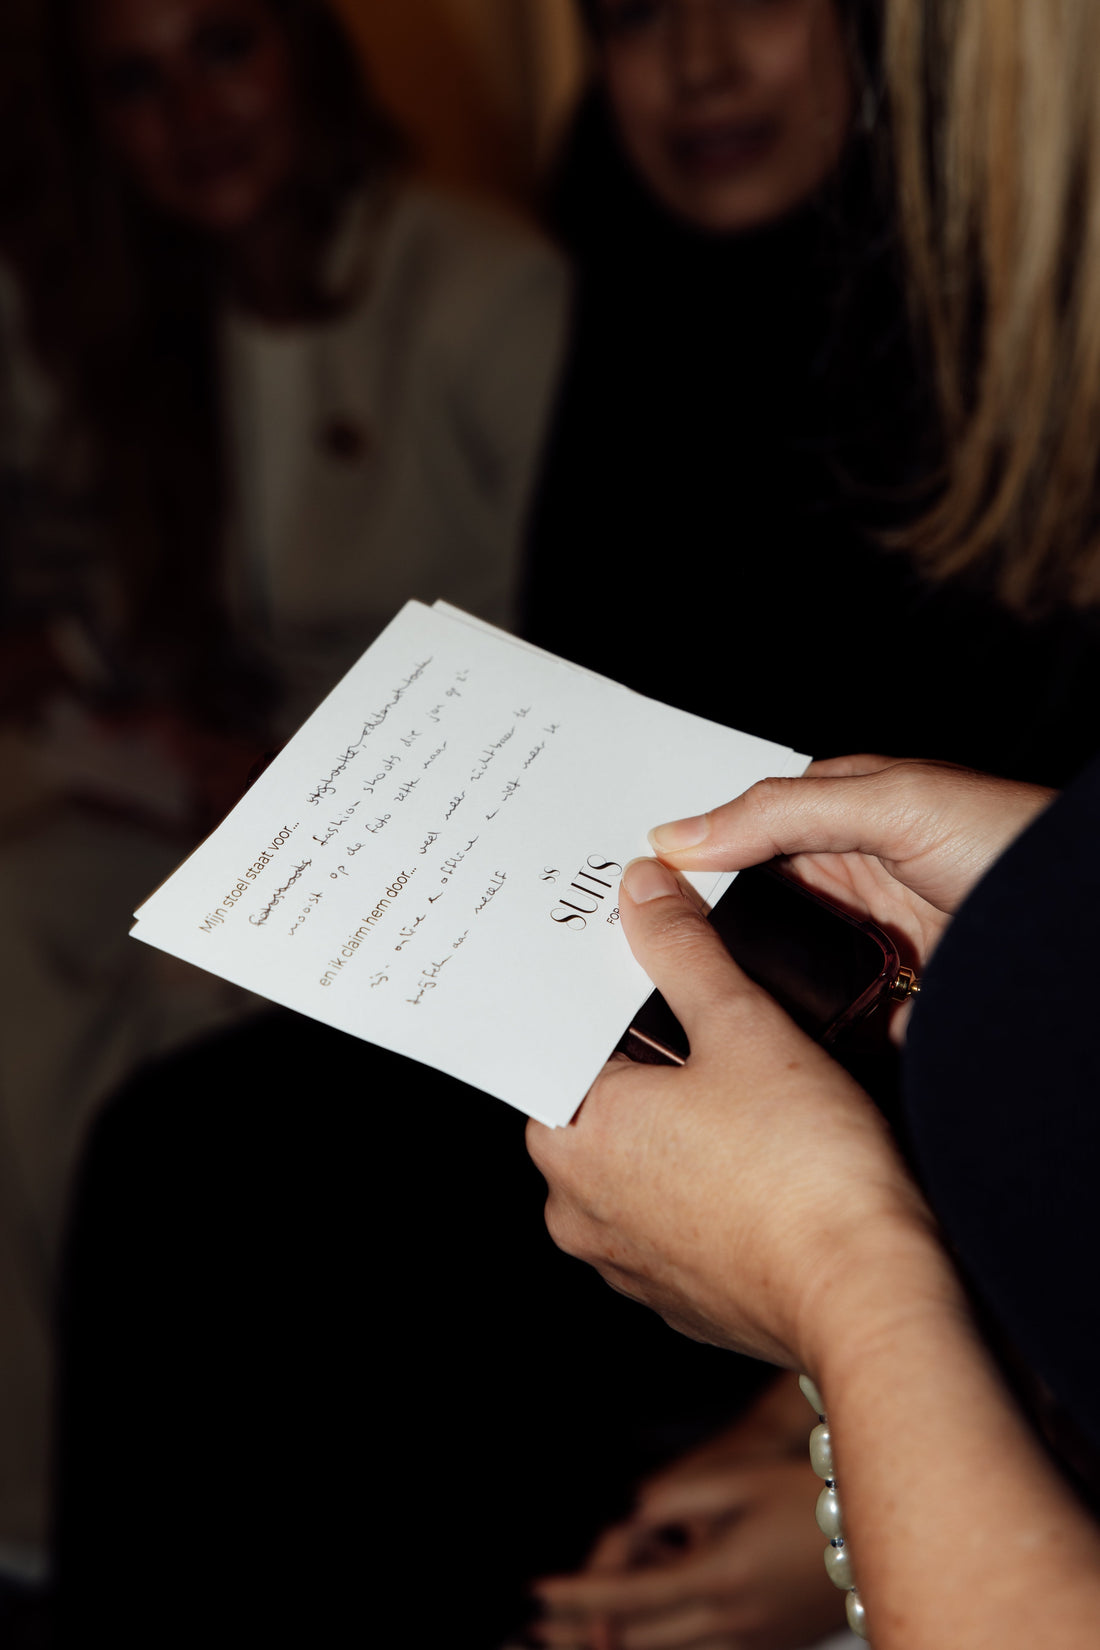 Mijn stoel staat voor...
fashion shoots die jou op z'n
mooist op de foto zetten maar
en ik claim hem door... veel meer zichtbaar te
zijn online & offline & niet meer te
twijfelen aan mezelf
SS
SUITS
FOR